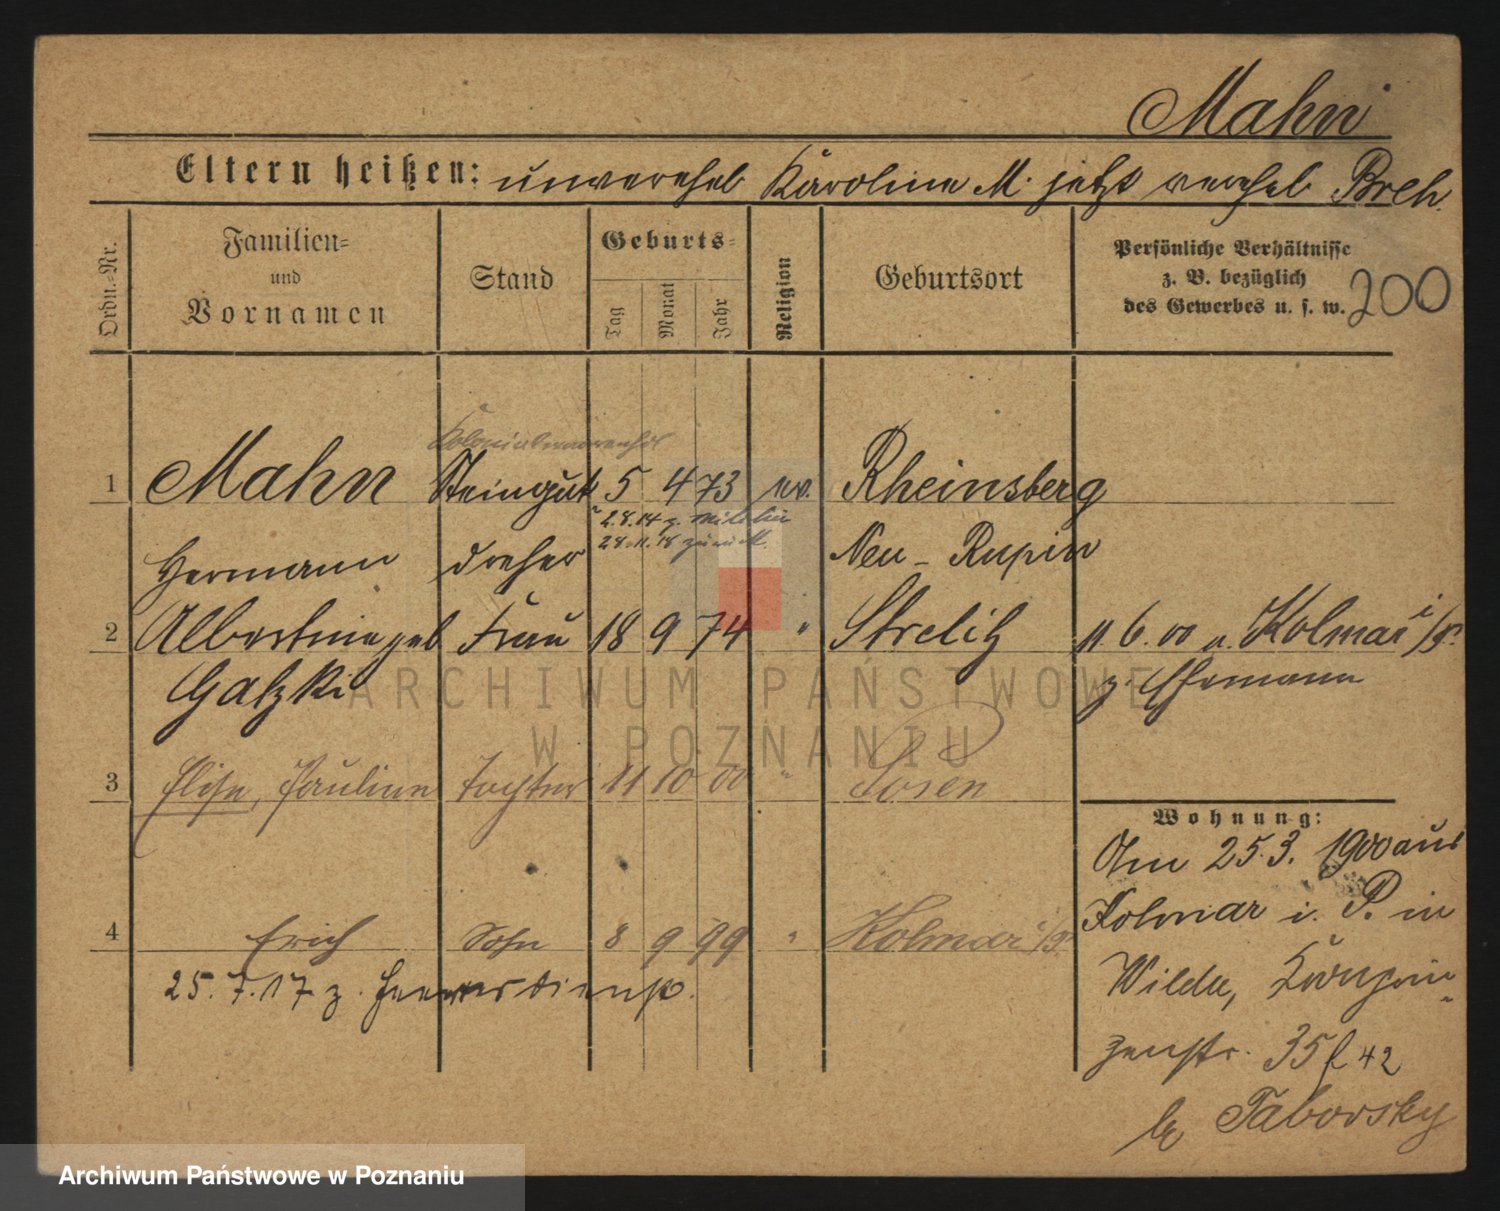 Mahn
Eltern heißen: unverehel Karoline M. jetzt verehel Breh.
Ordn.-Nr.
Familien- und Vornamen
Stand
Geburts-
Tag
Monat
Jahr
Religion
Geburtsort
Persönliche Verhältnisse
z. B. bezüglich
des Gewerbes u. s. w.
200
Kolonialwarenhdl
1 Mahn Steingut 5 4 73 ev. Rheinsberg
2.8.14 z. Militär
28.11.18 zurück
Hermann dreher Neu-Rupin
2 Albertine geb Frau 18 9 74 " Strelitz
Gatzki
11.6.00 v. Kolmar i/P.
z. Ehemann
3 Elise, Pauline Tochter 11 10 00 " Posen
4 Erich Sohn 8 9 99 " Kolmar i/P.
25.7.17 z. Heeresdienst.
Wohnung:
Am 25.3. 1900 aus
Kolmar i. P. in
Wilda, Kronprin-
zenstr. 35 f 42
be Taborsky
ARCHIWUM PAŃSTWOWE
W POZNANIU
Archiwum Państwowe w Poznaniu